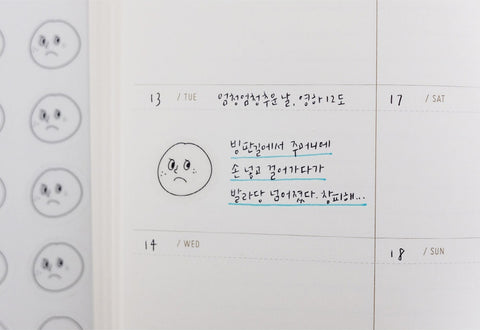 13 / TUE 엄청엄청 추운 날, 영하 12도
빙판길에서 주머니에
손 넣고 걸어가다가
발라당 넘어졌다. 창피해...
14 / WED
17 / SAT
18 / SUN